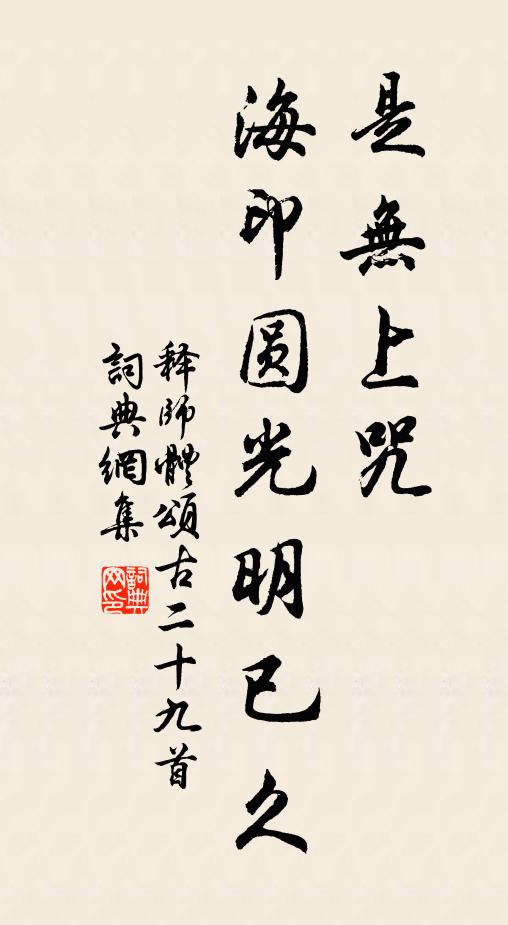 是無上咒
海印圆光明已久
释師體頌古二十九首
詞典網集
詞典网印